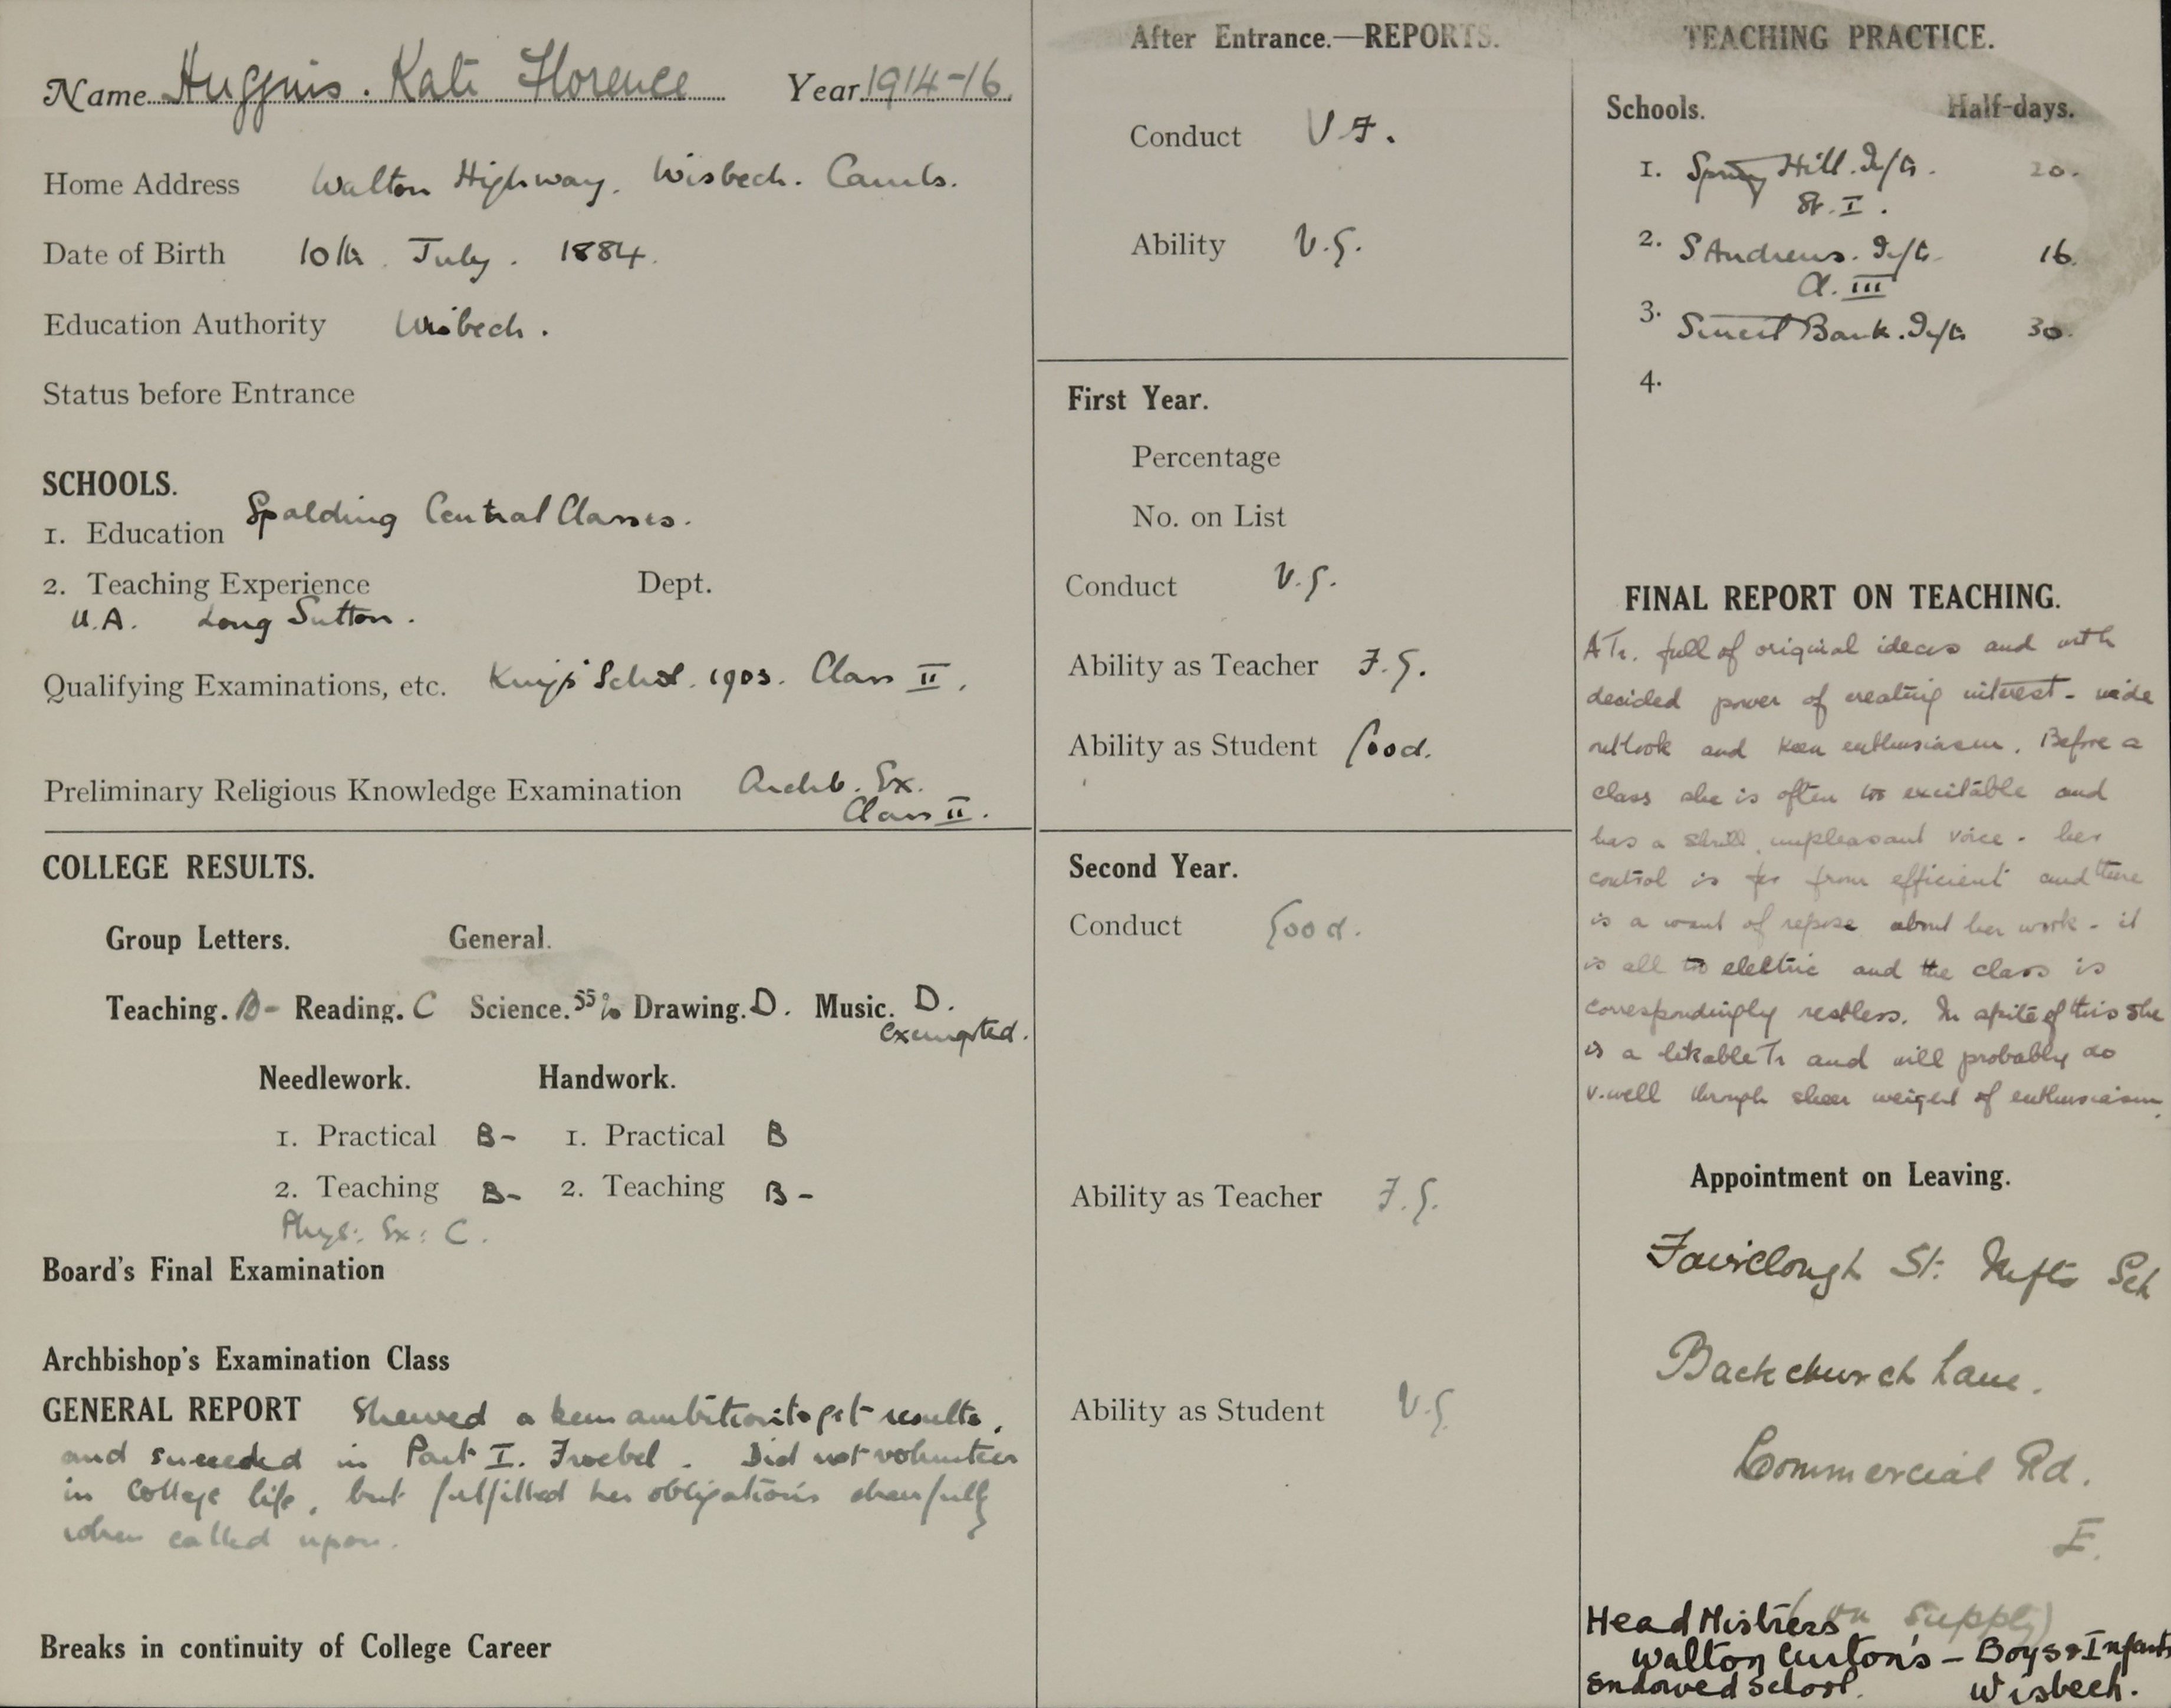 Name Huggins. Kate Florence Year 1914-16.
Home Address Walton Highway. Wisbech. Cambs.
Date of Birth 10th. July. 1884.
Education Authority Wisbech.
Status before Entrance
SCHOOLS.
1. Education Spalding Central Classes.
2. Teaching Experience Dept.
U.A. Long Sutton.
Qualifying Examinations, etc. King's Schol. 1903. Class II.
Preliminary Religious Knowledge Examination Archb. Ex.
Class II.
COLLEGE RESULTS.
Group Letters. General.
Teaching. B- Reading. C Science. 55% Drawing. D. Music. D.
exempted.
Needlework. Handwork.
1. Practical B- 1. Practical B
2. Teaching B- 2. Teaching B-
Phys: Ex: C.
Board's Final Examination
Archbishop's Examination Class
GENERAL REPORT Shewed a keen ambition to get results,
and succeeded in Part I. Froebel. Did not volunteer
in College life, but fulfilled her obligations cheerfully
when called upon.
Breaks in continuity of College Career
After Entrance.—REPORTS.
Conduct
Ability V.G.
First Year.
Percentage
No. on List
Conduct V.G.
Ability as Teacher F.G.
Ability as Student Good.
Second Year.
Conduct Good.
Ability as Teacher F.G.
Ability as Student V.G.
TEACHING PRACTICE.
Schools. Half-days.
1. Spring Hill. Infts. 20.
St. I.
2. S Andrews. Infts. 16.
Cl. III
3. Bank. Infts 30.
4.
FINAL REPORT ON TEACHING.
A Tr. full of original ideas and with
decided power of creating interest - wide
outlook and keen enthusiasm. Before a
class she is often too excitable and
has a shrill, unpleasant voice - her
control is far from efficient and there
is a want of repose about her work - it
is all too electric and the class is
correspondingly restless. In spite of this she
is a likable Tr and will probably do
v. well through sheer weight of enthusiasm.
Appointment on Leaving.
Fairclough St. Infts Sch
Backchurch Lane.
Commercial Rd.
E.
(on supply)
Head Mistress
Walton Curton's - Boys & Infants
Endowed School. Wisbech.